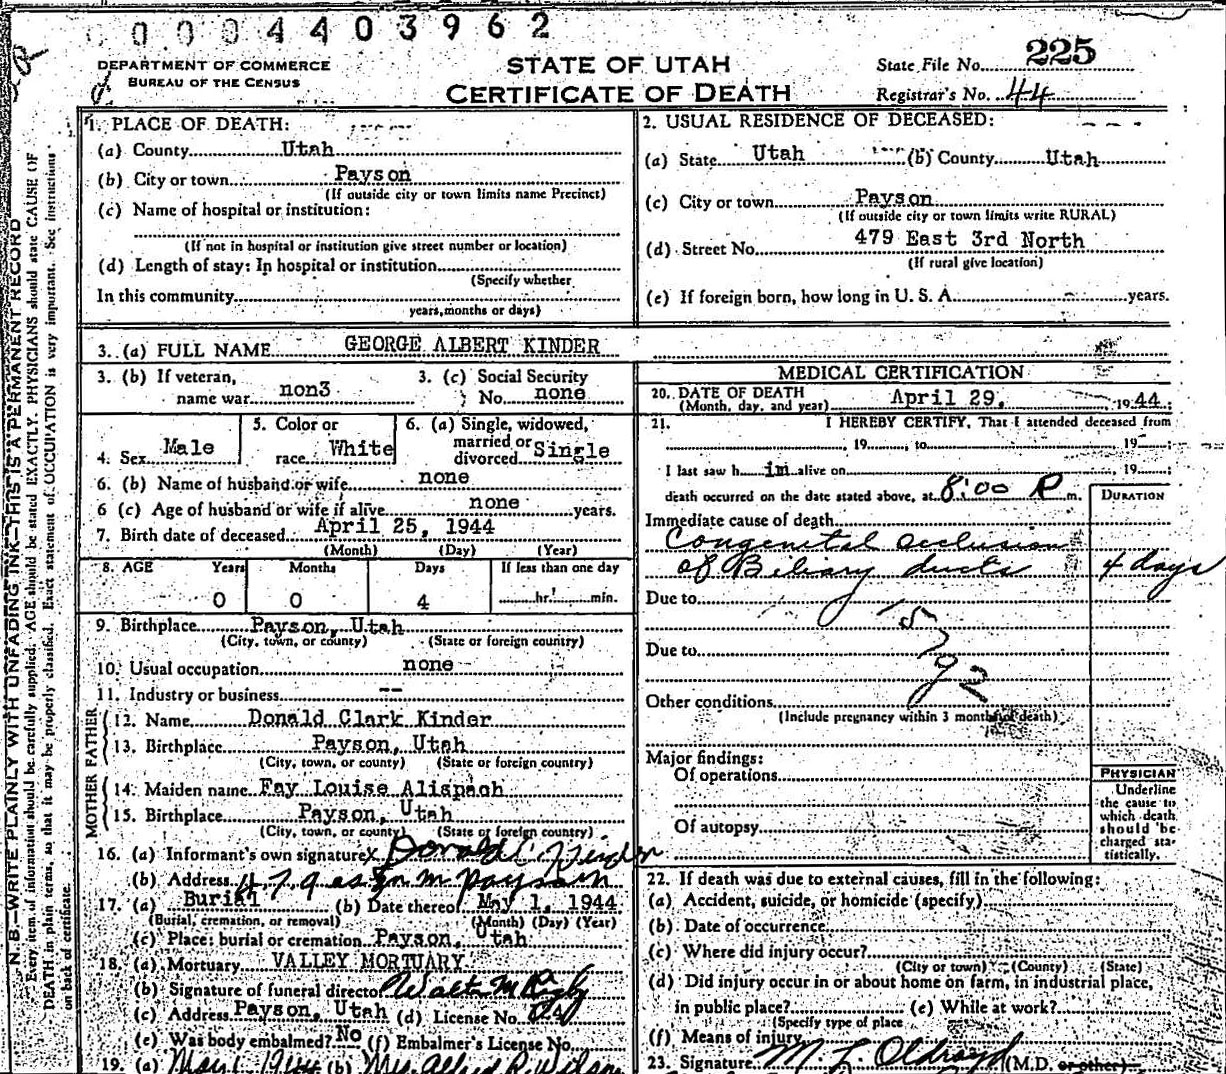 0 0 0 4 4 0 3 9 6 2
DEPARTMENT OF COMMERCE
BUREAU OF THE CENSUS
STATE OF UTAH
CERTIFICATE OF DEATH
State File No. 225
Registrar's No. 44
N.B.—WRITE PLAINLY WITH UNFADING INK—THIS IS A PERMANENT RECORD
Every item of information should be carefully supplied. AGE should be stated EXACTLY. PHYSICIANS should state CAUSE OF
DEATH in plain terms, so that it may be properly classified. Exact statement of OCCUPATION is very important. See instructions
on back of certificate.
1. PLACE OF DEATH:
(a) County Utah
(b) City or town Payson
(If outside city or town limits name Precinct)
(c) Name of hospital or institution:
(If not in hospital or institution give street number or location)
(d) Length of stay: In hospital or institution
(Specify whether
In this community
years, months or days)
2. USUAL RESIDENCE OF DECEASED:
(a) State Utah (b) County Utah
(c) City or town Payson
(If outside city or town limits write RURAL)
(d) Street No. 479 East 3rd North
(If rural give location)
(e) If foreign born, how long in U. S. A. years.
3. (a) FULL NAME GEORGE ALBERT KINDER
3. (b) If veteran, name war non3
3. (c) Social Security No. none
4. Sex Male
5. Color or race White
6. (a) Single, widowed, married or divorced Single
6. (b) Name of husband or wife none
6 (c) Age of husband or wife if alive none years.
7. Birth date of deceased April 25, 1944
(Month) (Day) (Year)
8. AGE Years Months Days If less than one day
0 0 4 hr. min.
9. Birthplace Payson, Utah
(City, town, or county) (State or foreign country)
10. Usual occupation none
11. Industry or business --
FATHER
12. Name Donald Clark Kinder
13. Birthplace Payson, Utah
(City, town, or county) (State or foreign country)
MOTHER
14. Maiden name Fay Louise Alispach
15. Birthplace Payson, Utah
(City, town, or county) (State or foreign country)
16. (a) Informant's own signature X Donald C. Kinder
(b) Address 479 Payson
17. (a) Burial (b) Date thereof May 1, 1944
(Burial, cremation, or removal) (Month) (Day) (Year)
(c) Place: burial or cremation Payson, Utah
18. (a) Mortuary VALLEY MORTUARY
(b) Signature of funeral director Walter M Rigby
(c) Address Payson, Utah (d) License No.
(e) Was body embalmed? No (f) Embalmer's License No.
19. (a) May 1 1944 (b) Mrs. Alfred R. Wilson
MEDICAL CERTIFICATION
20. DATE OF DEATH April 29, 1944
(Month, day, and year)
21. I HEREBY CERTIFY, That I attended deceased from
, 19 , to , 19 ;
I last saw h im alive on , 19 ;
death occurred on the date stated above, at 8:00 P m.
DURATION
Immediate cause of death
Congenital occlusion
of Biliary ducts 4 days
Due to
Due to
Other conditions
(Include pregnancy within 3 months of death)
Major findings:
Of operations
Of autopsy
PHYSICIAN
Underline
the cause to
which death
should be
charged sta-
tistically.
22. If death was due to external causes, fill in the following:
(a) Accident, suicide, or homicide (specify)
(b) Date of occurrence
(c) Where did injury occur?
(City or town) (County) (State)
(d) Did injury occur in or about home on farm, in industrial place,
in public place? (e) While at work?
(Specify type of place
(f) Means of injury
23. Signature M. L. Oldroyd (M.D. or other)